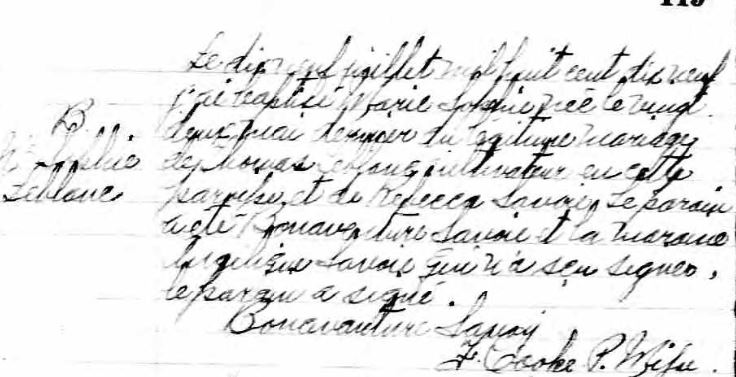 119
Le dix neuf juillet mil huit cent dix neuf
j'ai baptisé Marie Sophie née le vingt
B
deux mai dernier du légitime mariage
Me Sophie
de Thomas Leblanc cultivateur en cette
Leblanc
paroisse et de Rebecca Savoie. Le parain
a été Bonaventure Savoie et la maraine
Savoie qui n'a seu signer,
le parain a signé.
Bonavanture Savoy
F. Cooke P. Miss.